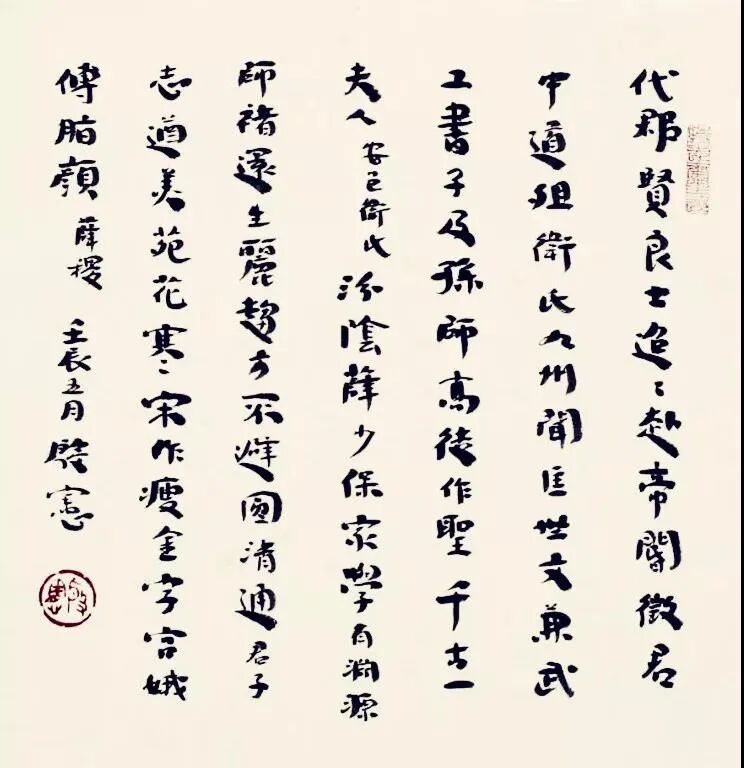 代郡賢良士迢〻赴帝閽徵君
中道殂衛氏九州聞匡世文兼武
工書子及孫師高徒作聖千古一
夫人安邑衛氏汾陰薛少保家學有淵源
師褚還生麗趨古不避圓清通君子
志遒美苑花寒〻宋作瘦金字宮娥
傅脂顏薛稷壬辰五月啟憲